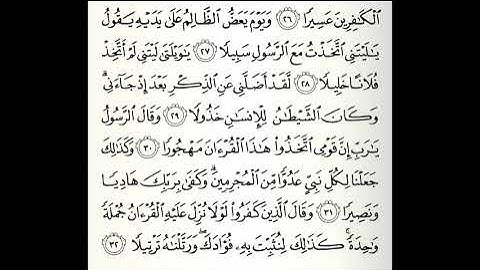 ٱلْكَٰفِرِينَ عَسِيرًا ٢٦ وَيَوْمَ يَعَضُّ ٱلظَّالِمُ عَلَىٰ يَدَيْهِ يَقُولُ
يَٰلَيْتَنِي ٱتَّخَذْتُ مَعَ ٱلرَّسُولِ سَبِيلًا ٢٧ يَٰوَيْلَتَىٰ لَيْتَنِي لَمْ أَتَّخِذْ
فُلَانًا خَلِيلًا ٢٨ لَّقَدْ أَضَلَّنِي عَنِ ٱلذِّكْرِ بَعْدَ إِذْ جَآءَنِيۗ
وَكَانَ ٱلشَّيْطَٰنُ لِلْإِنسَٰنِ خَذُولًا ٢٩ وَقَالَ ٱلرَّسُولُ
يَٰرَبِّ إِنَّ قَوْمِي ٱتَّخَذُوا۟ هَٰذَا ٱلْقُرْءَانَ مَهْجُورًا ٣٠ وَكَذَٰلِكَ
جَعَلْنَا لِكُلِّ نَبِيٍّ عَدُوًّا مِّنَ ٱلْمُجْرِمِينَۗ وَكَفَىٰ بِرَبِّكَ هَادِيًا
وَنَصِيرًا ٣١ وَقَالَ ٱلَّذِينَ كَفَرُوا۟ لَوْلَا نُزِّلَ عَلَيْهِ ٱلْقُرْءَانُ جُمْلَةً
وَٰحِدَةًۚ كَذَٰلِكَ لِنُثَبِّتَ بِهِۦ فُؤَادَكَۖ وَرَتَّلْنَٰهُ تَرْتِيلًا ٣٢